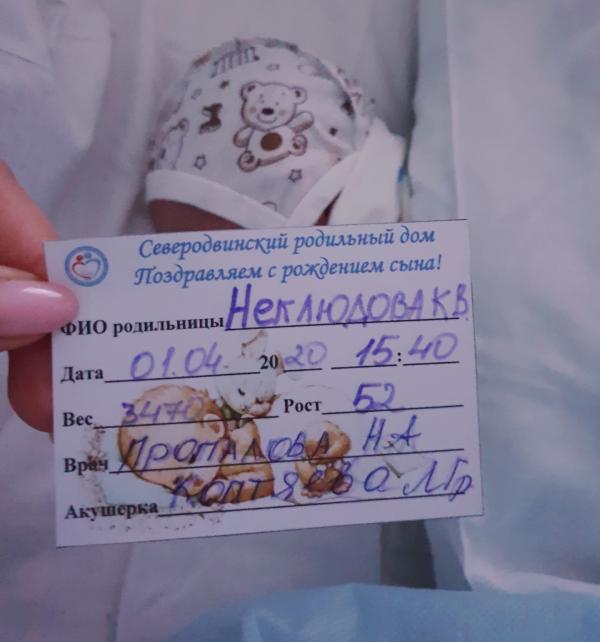 Северодвинский родильный дом
Поздравляем с рождением сына!
ФИО родильницы Неклюдова К В
Дата 01.04. 20 20 15:40
Вес 3470 Рост 52
Врач Пропалова Н А
Акушерка Коптяева Л Гр